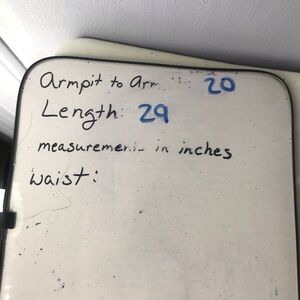 armpit to arm 20
Length: 29
measurements in inches
waist: